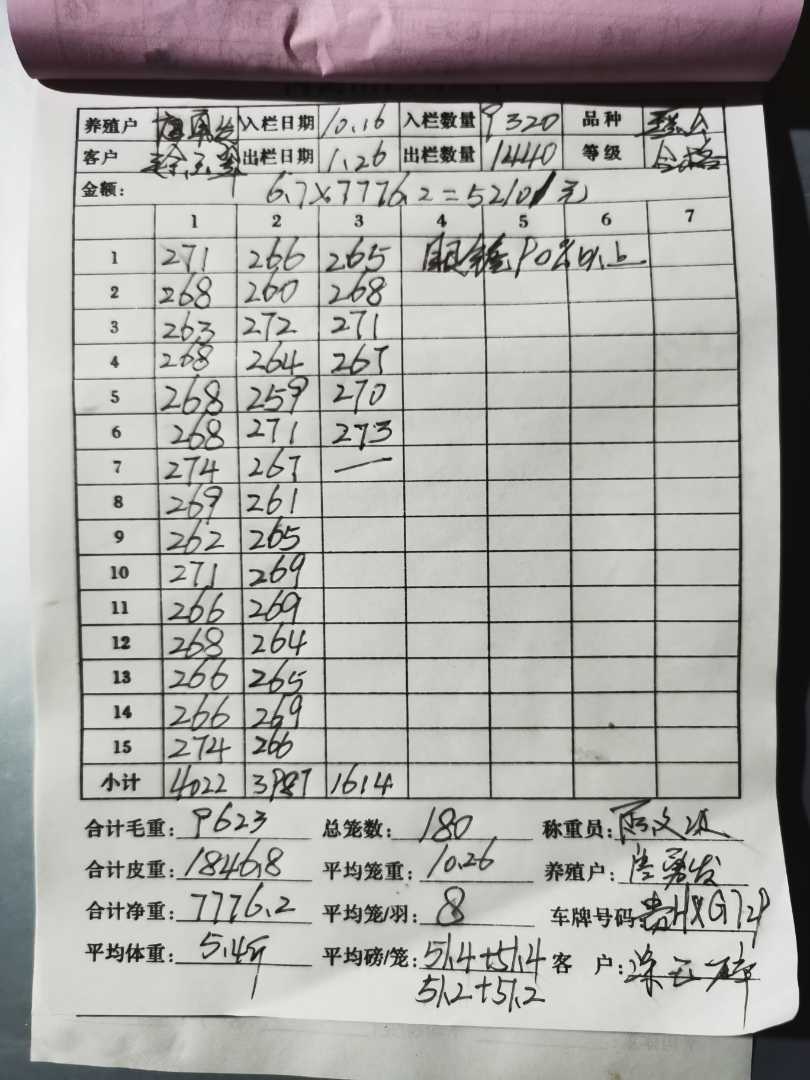 养殖户 唐勇发 入栏日期 10.16 入栏数量 9320 品种
客户 出栏日期 1.26 出栏数量 1440 等级 合格
金额: 6.7×7776.2=52101元
1 2 3 4 5 6 7
1 271 266 265 90%以上
2 268 260 268
3 263 272 271
4 268 264 267
5 268 259 270
6 268 271 273
7 274 267 —
8 269 261
9 262 265
10 271 269
11 266 269
12 268 264
13 266 265
14 266 269
15 274 266
小计 4022 3987 1614
合计毛重: 9623 总笼数: 180 称重员:
合计皮重: 1846.8 平均笼重: 10.26 养殖户: 唐勇发
合计净重: 7776.2 平均笼/羽: 8 车牌号码:
平均体重: 5.4斤 平均磅/笼: 51.4+51.4 客 户:
51.2+51.2